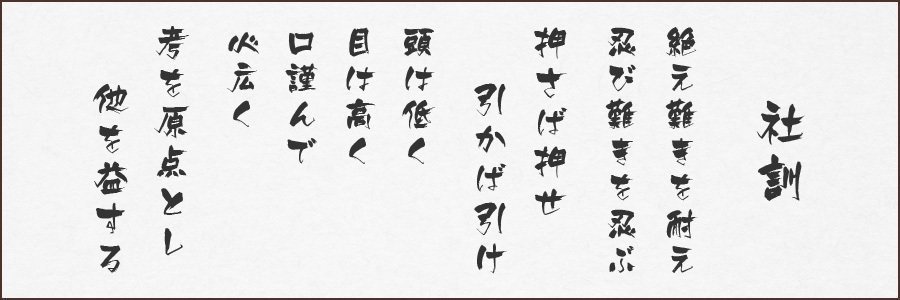 社訓
絶え難きを耐え
忍び難きを忍ぶ
押さば押せ
引かば引け
頭は低く
目は高く
口謹んで
心広く
考を原点とし
他を益する